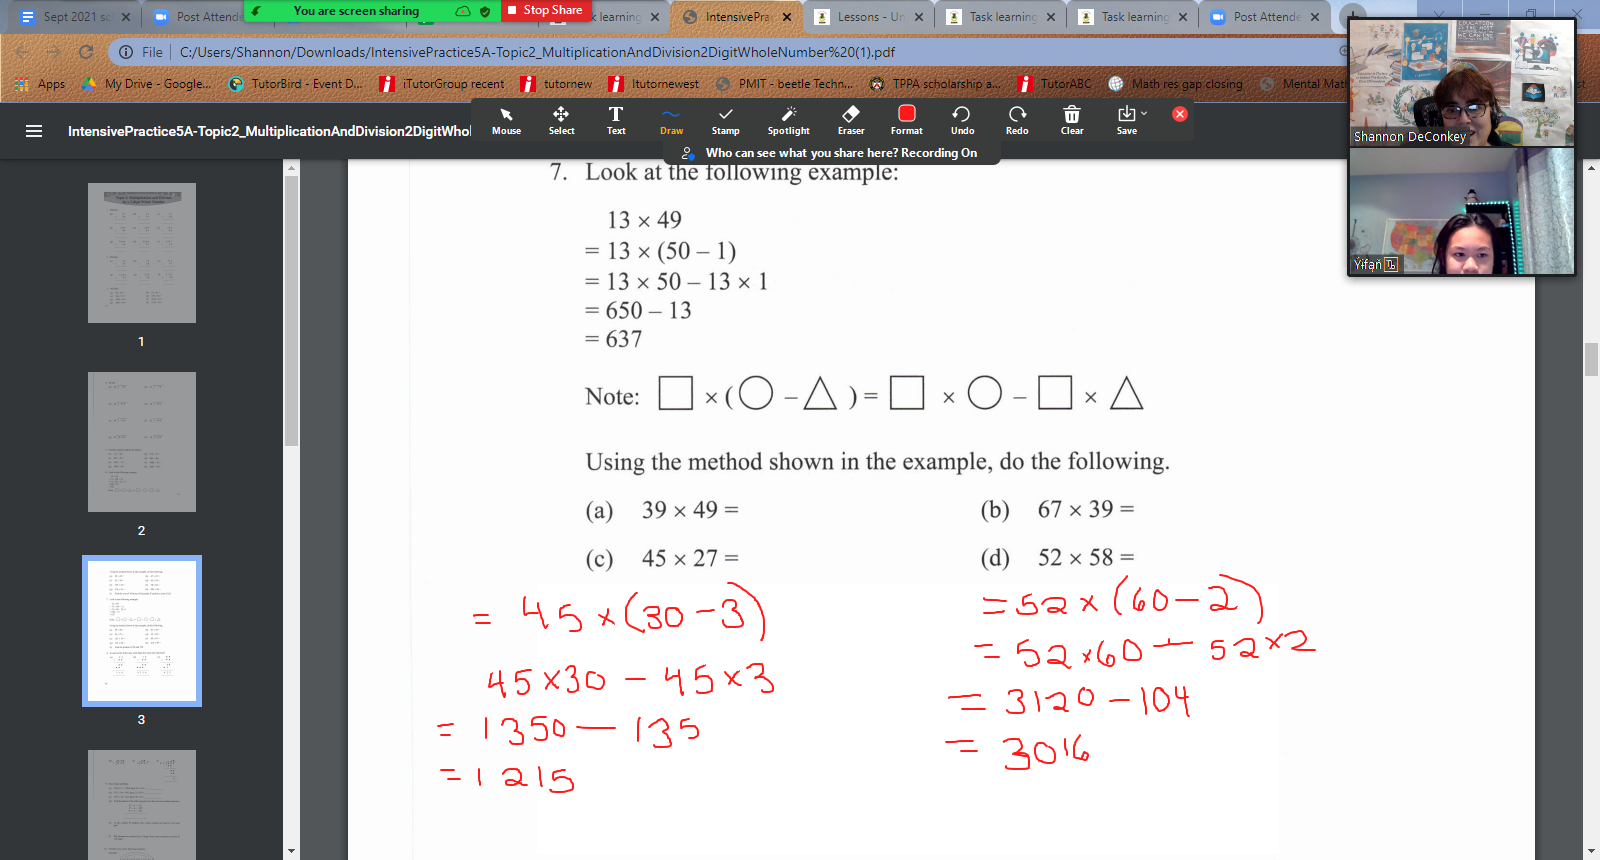 Sept 2021 sc
Post Attende
You are screen sharing
Stop Share
k learning
IntensivePra
Lessons - Un
Task learning
Task learning
Post Attende
File C:/Users/Shannon/Downloads/IntensivePractice5A-Topic2_MultiplicationAndDivision2DigitWholeNumber%20(1).pdf
Apps
My Drive – Google...
TutorBird - Event D...
iTutorGroup recent
tutornew
Itutornewest
PMIT - beetle Techn...
TPPA scholarship a...
TutorABC
Math res gap closing
Mental Mat
IntensivePractice5A-Topic2_MultiplicationAndDivision2DigitWhol
Mouse Select Text Draw Stamp Spotlight Eraser Format Undo Redo Clear Save
Who can see what you share here? Recording On
Shannon DeConkey
Yifan
1
2
3
7. Look at the following example:
13 × 49
= 13 × (50 – 1)
= 13 × 50 – 13 × 1
= 650 – 13
= 637
Note: □ × ( ○ – △ ) = □ × ○ – □ × △
Using the method shown in the example, do the following.
(a) 39 × 49 =
(b) 67 × 39 =
(c) 45 × 27 =
(d) 52 × 58 =
= 45 × (30 – 3)
45 × 30 – 45 × 3
= 1350 – 135
= 1215
= 52 × (60 – 2)
= 52 × 60 – 52 × 2
= 3120 – 104
= 3016